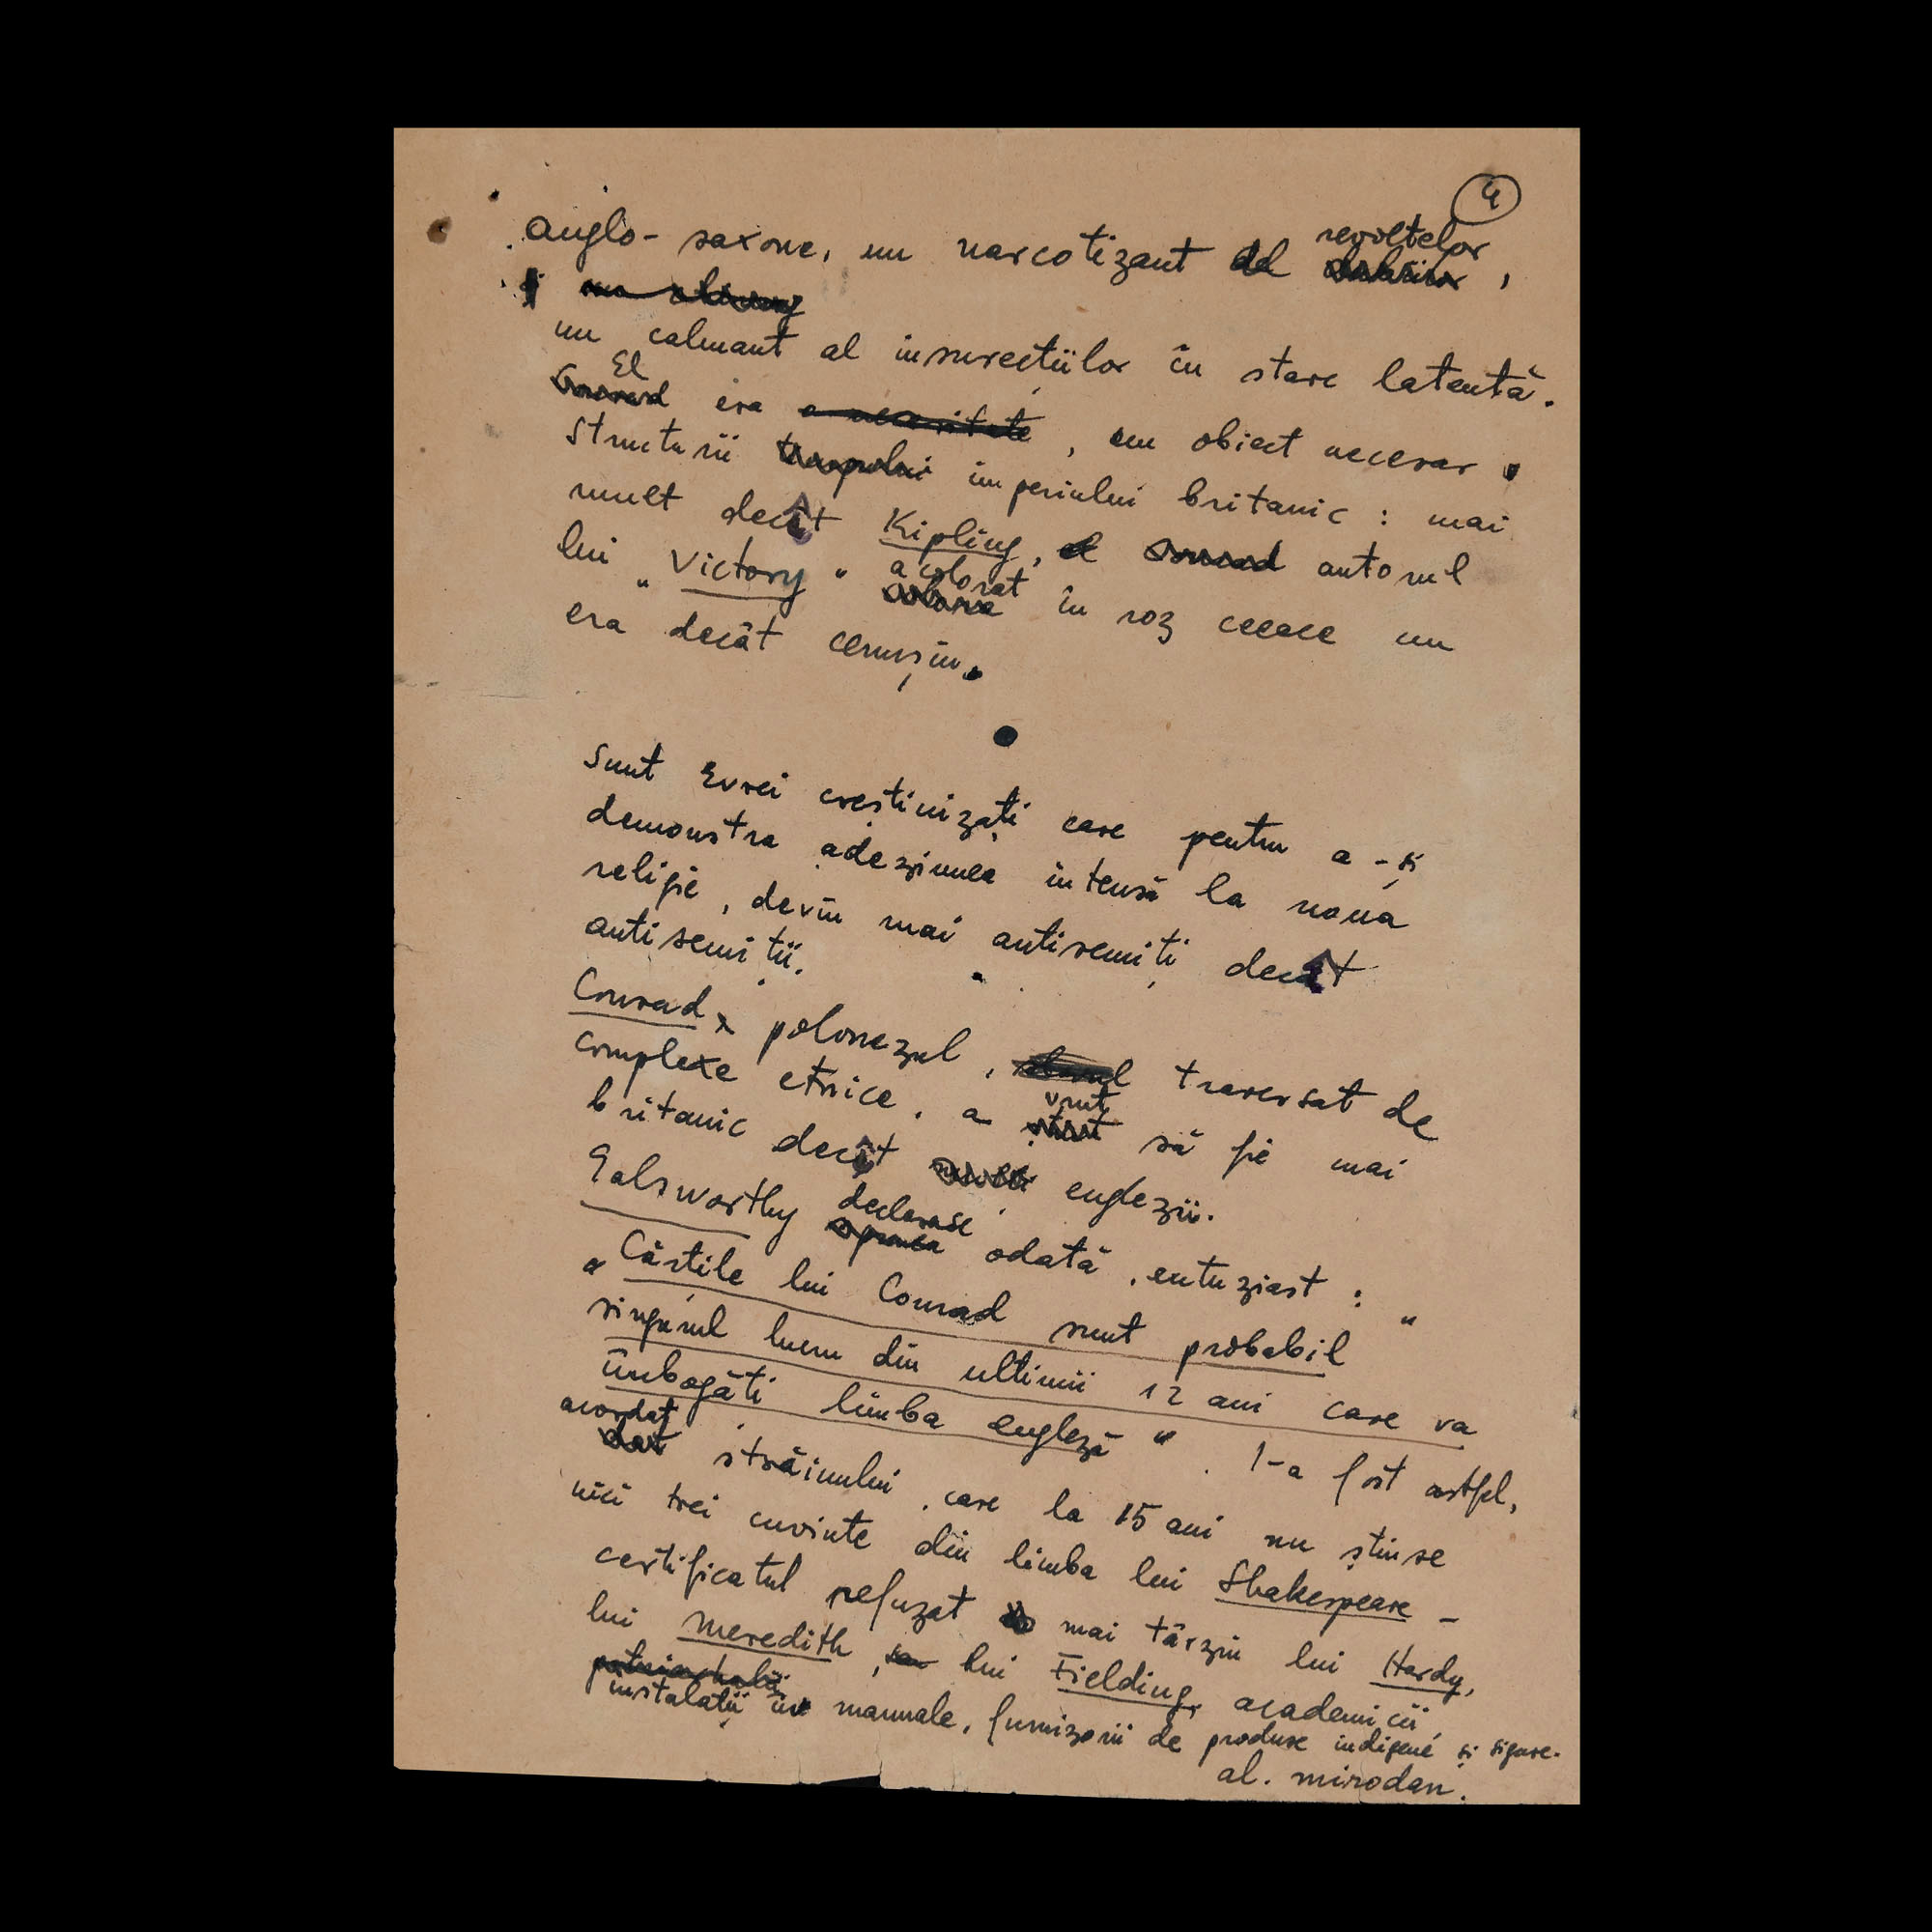 4
anglo-saxone, un narcotizant al revoltelor,
un calmant al insurecțiilor în stare latentă.
El era , un obiect necesar
structurii imperiului britanic : mai
mult decât Kipling, autorul
lui „Victory" a colorat în roz ceeace nu
era decât cenușiu.
Sunt Evrei creștinizați care pentru a-și
demonstra adeziunea intensă la noua
religie, devin mai antisemiți decât
antisemiții.
Conrad, polonezul, traversat de
complexe etnice, a vrut să fie mai
britanic decât englezii.
Galsworthy declarase odată, entuziast : "
"Cărțile lui Conrad sunt probabil
singurul lucru din ultimii 12 ani care va
îmbogăți limba engleză". I-a fost astfel,
acordat străinului, care la 15 ani nu știuse
nici trei cuvinte din limba lui Shakespeare -
certificatul refuzat mai târziu lui Hardy,
lui Meredith, lui Fielding, academicii,
instalații în manuale, furnizorii de produse indigene și sigure.
al. mirodan.